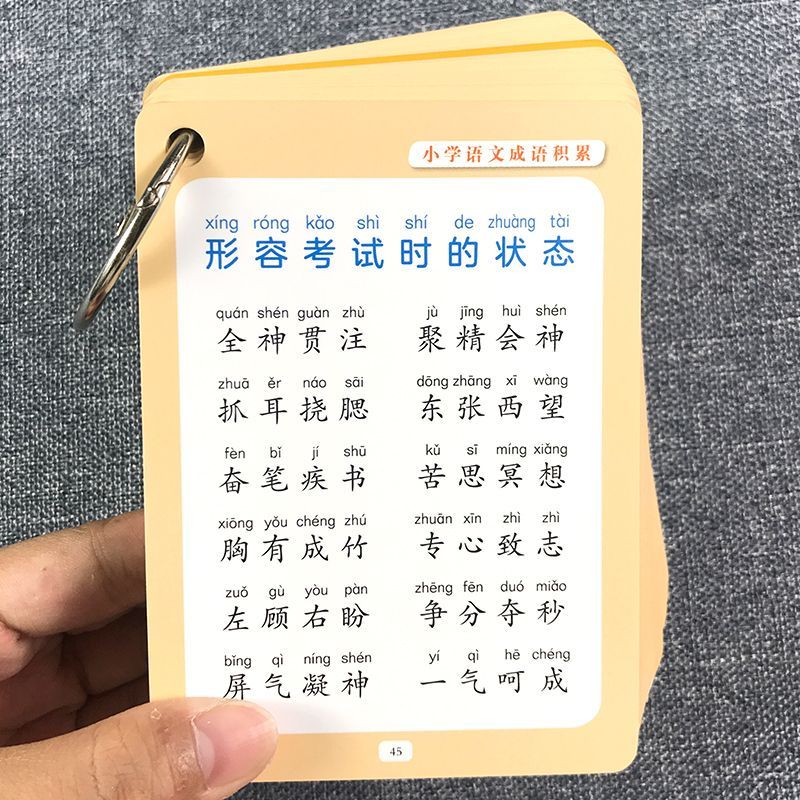 小学语文成语积累
xíng róng kǎo shì shí de zhuàng tài
形容考试时的状态
quán shén guàn zhù jù jīng huì shén
全神贯注 聚精会神
zhuā ěr náo sāi dōng zhāng xī wàng
抓耳挠腮 东张西望
fèn bǐ jí shū kǔ sī míng xiǎng
奋笔疾书 苦思冥想
xiōng yǒu chéng zhú zhuān xīn zhì zhì
胸有成竹 专心致志
zuǒ gù yòu pàn zhēng fēn duó miǎo
左顾右盼 争分夺秒
bǐng qì níng shén yí qì hē chéng
屏气凝神 一气呵成
45